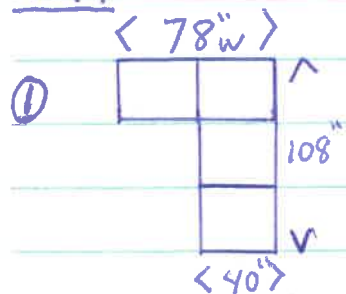 < 78"w >
①
108"
< 40" >